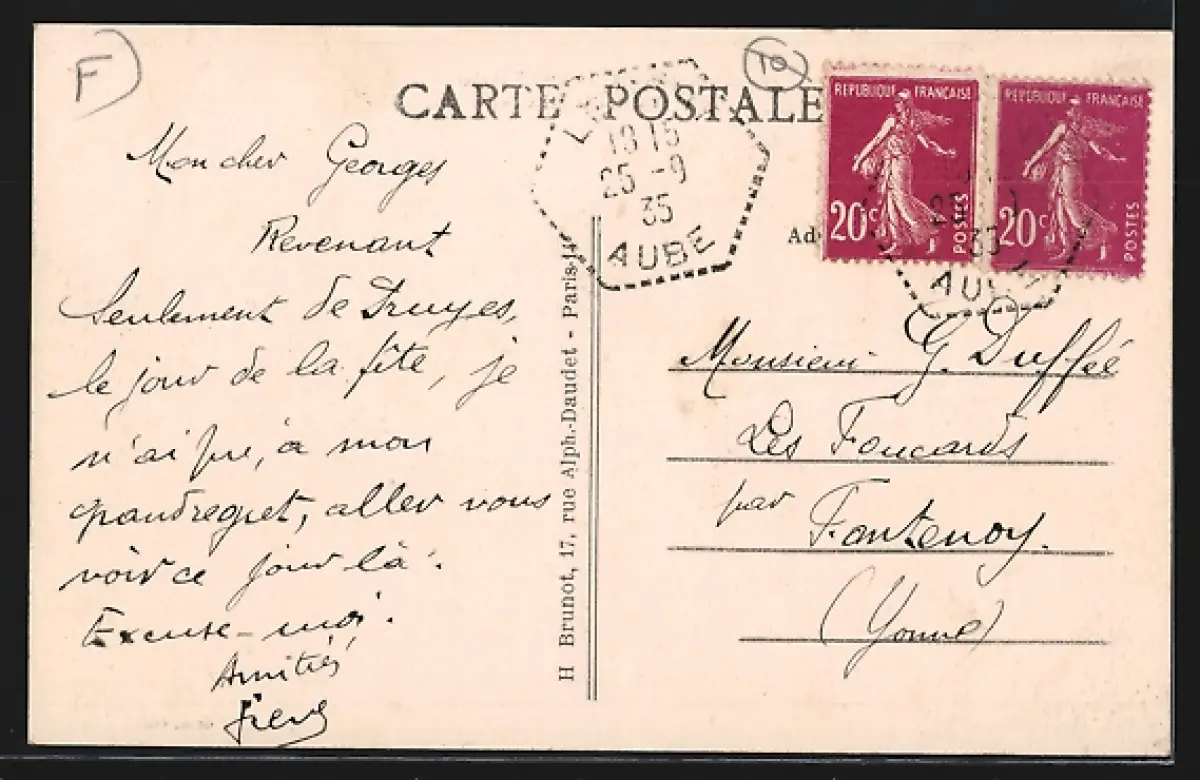 F
TO
CARTE POSTALE
18 15
25 -9
35
AUBE
REPUBLIQUE FRANÇAISE
20c
POSTES
REPUBLIQUE FRANÇAISE
20c
POSTES
35
AU
Ad
Mon cher Georges
Revenant
Seulement de Druyes,
le jour de la fête, je
n'ai pu, à mon
grand regret, aller vous
voir ce jour-là.
Excuse-moi.
Amitiés
H Brunot, 17, rue Alph.-Daudet - Paris-14
Monsieur G. Duffée
Les Foucards
par Fontenoy.
(Yonne)